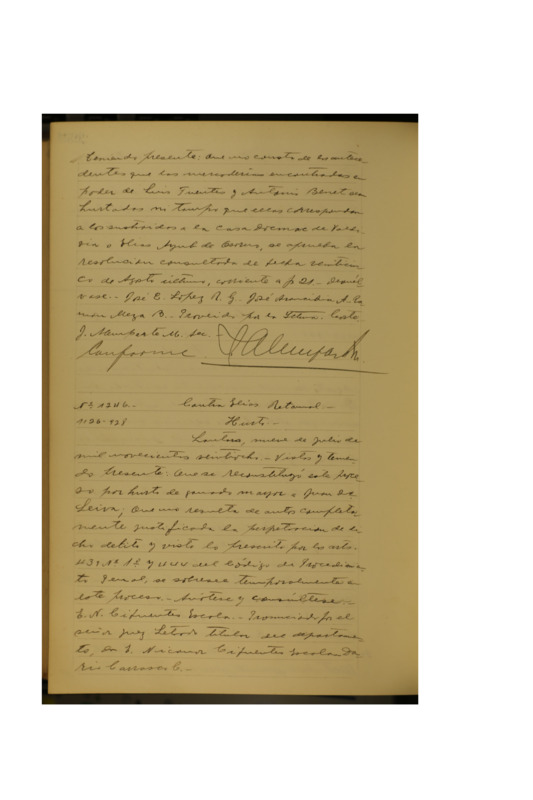 Teniendo presente: Que no consta de los antece-
dentes que las mercaderías encontradas en
poder de Luis Fuentes y Antonio Beret sean
hurtadas ni tampo que ellas correspondan
a los sustraidos a la Casa Docmac de Valdi-
via o Elias Ayub de Osorno, se aprueba la
resolución consultada de fecha veintiun-
co de Agosto último, corriente a fs 21.- Devuél
vase.- José E. López R. G. José Arancibia A. Ro
mán Meza B.- Proveído por la Iltma. Corte
J. Alemparte M. sec.-
Conforme
Nº 1246.- Contra Elias Retamal.-
1126-928 Hurto.-
Lautaro, nueve de Julio de
mil novecientos veintiocho.- Vistos y tenien-
do presente: Que se reconstituyó este proce-
so por hurto de ganado mayor a Juan de
Leiva; Que no resulta de autos completa-
mente justificada la perpetración de di-
cho delito y visto lo prescrito por los arts.
439 Nº 1º y 444 del Código de Procedimien-
to Penal, se sobresee temporalmente en
este proceso.- Anótese y consúltese.-
E. N. Cifuentes Escala.- Pronunciado por el
señor Juez Letrado titular del departamen-
to, don E. Nicanor Cifuentes Escala.- Da
rio Carrasco C.-